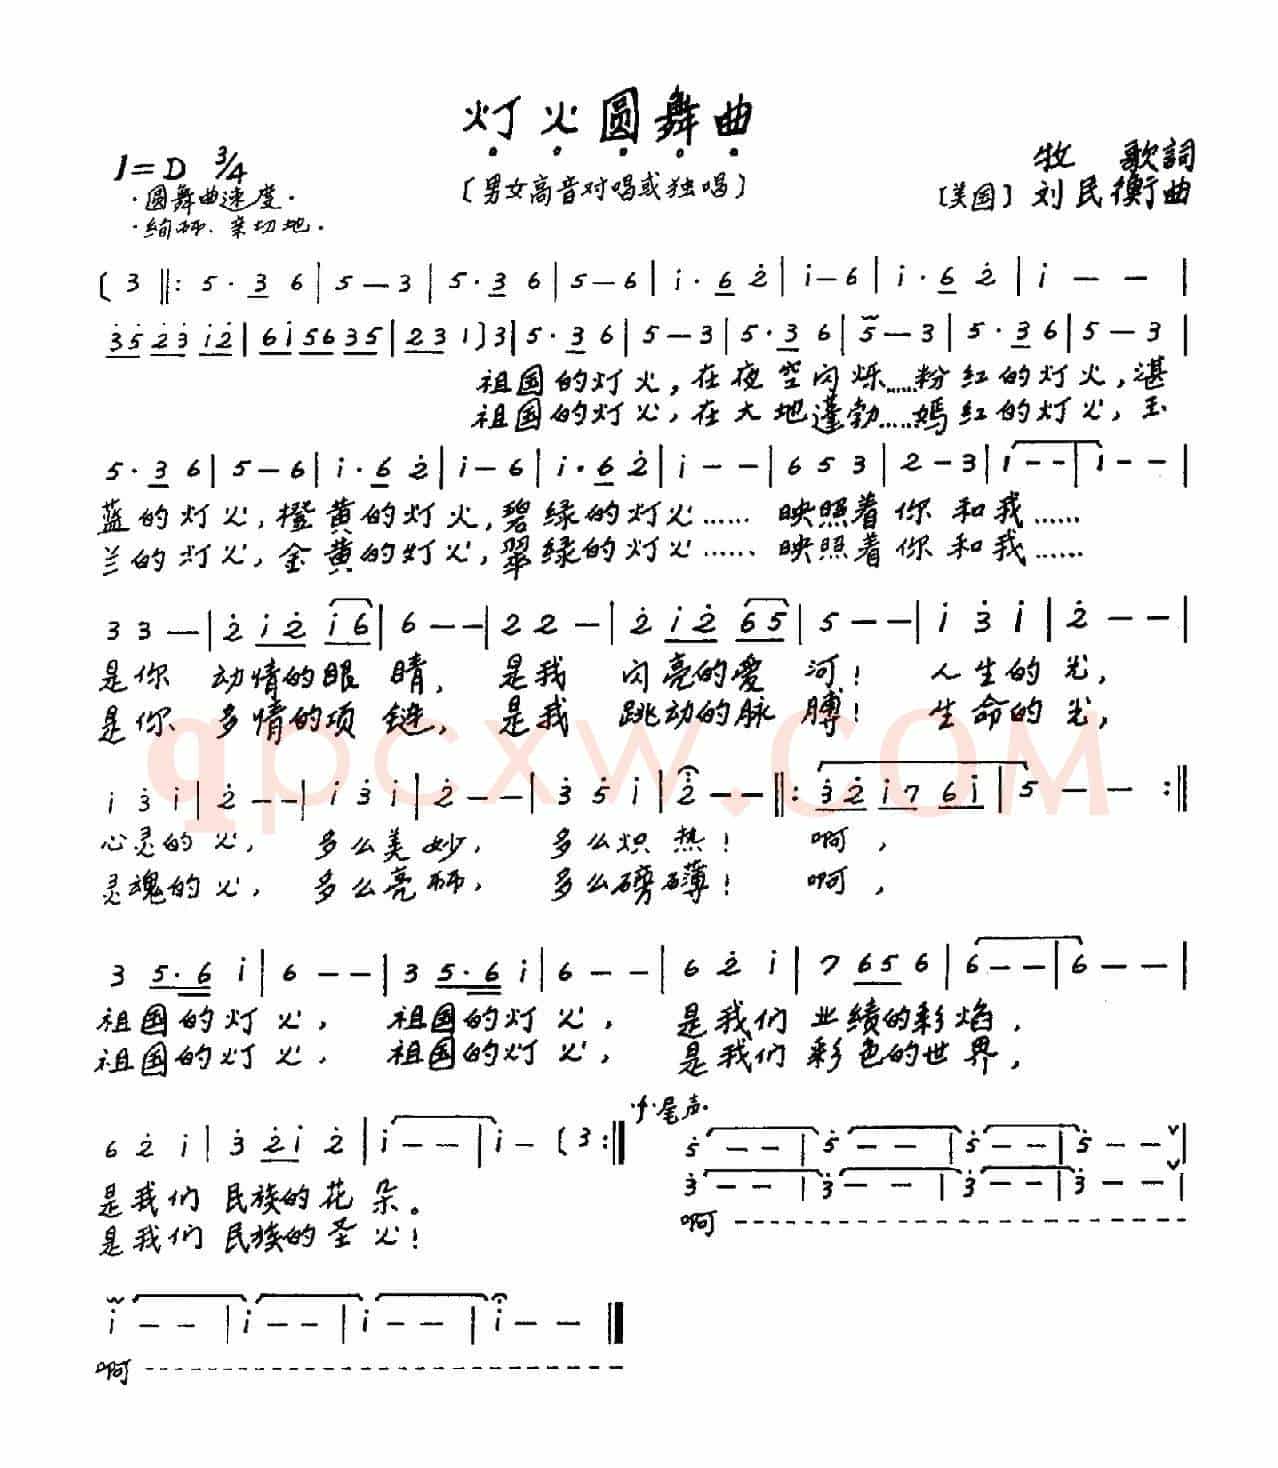 灯火圆舞曲
1=D 3/4
牧 歌詞
·圆舞曲速度·
〔男女高音对唱或独唱〕
〔美国〕刘民衡曲
·绚丽、亲切地·
( 3 ‖: 5· 3 6 | 5 — 3 | 5· 3 6 | 5 — 6 | i· 6 2̇ | i — 6 | i· 6 2̇ | i — — |
3̇5̇ 2̇3̇ i2̇ | 6i 56 35 | 23 1 ) 3 | 5· 3 6 | 5 — 3 | 5· 3 6 | 5 — 3 | 5· 3 6 | 5 — 3 |
祖国的灯火,在夜空闪烁……粉红的灯火,湛
祖国的灯火,在大地蓬勃……嫣红的灯火,玉
5· 3 6 | 5 — 6 | i· 6 2̇ | i — 6 | i· 6 2̇ | i — — | 6 5 3 | 2 — 3 | 1 — — | 1 — — |
蓝的灯火,橙黄的灯火,碧绿的灯火…… 映照着你和我……
兰的灯火,金黄的灯火,翠绿的灯火…… 映照着你和我……
3 3 — | 2̇ i2̇ i6 | 6 — — | 2 2 — | 2̇ i2̇ 65 | 5 — — | i 3̇ i | 2̇ — — |
是你 动情的眼 睛, 是我 闪亮的爱 河! 人生的光,
是你 多情的项 链, 是我 跳动的脉 膊! 生命的光,
qpcxw.COM
i 3̇ i | 2̇ — — | i 3̇ i | 2̇ — — | 3̇ 5̇ i | 2̇ — — ‖: 3̇2̇ i7 6i | 5 — — :‖
心灵的火, 多么美妙, 多么炽热! 啊,
灵魂的火, 多么亮丽, 多么磅礴! 啊,
3 5·6 i | 6 — — | 3 5·6 i | 6 — — | 6 2̇ i | 7 65 6 | 6 — — | 6 — — |
祖国的灯火, 祖国的灯火, 是我们业绩的彩焰,
祖国的灯火, 祖国的灯火, 是我们彩色的世界,
·f·尾声·
6 2̇ i | 3̇ 2̇i 2̇ | i — — | i — ( 3 :‖ 5̇ — — | 5̇ — — | 5̇ — — | 5̇ — — |
3̇ — — | 3̇ — — | 3̇ — — | 3̇ — — |
是我们 民族的花 朵。
啊 ---------------------------
是我们 民族的圣 火!
i — — | i — — | i — — | i — — ‖
啊 ---------------------------